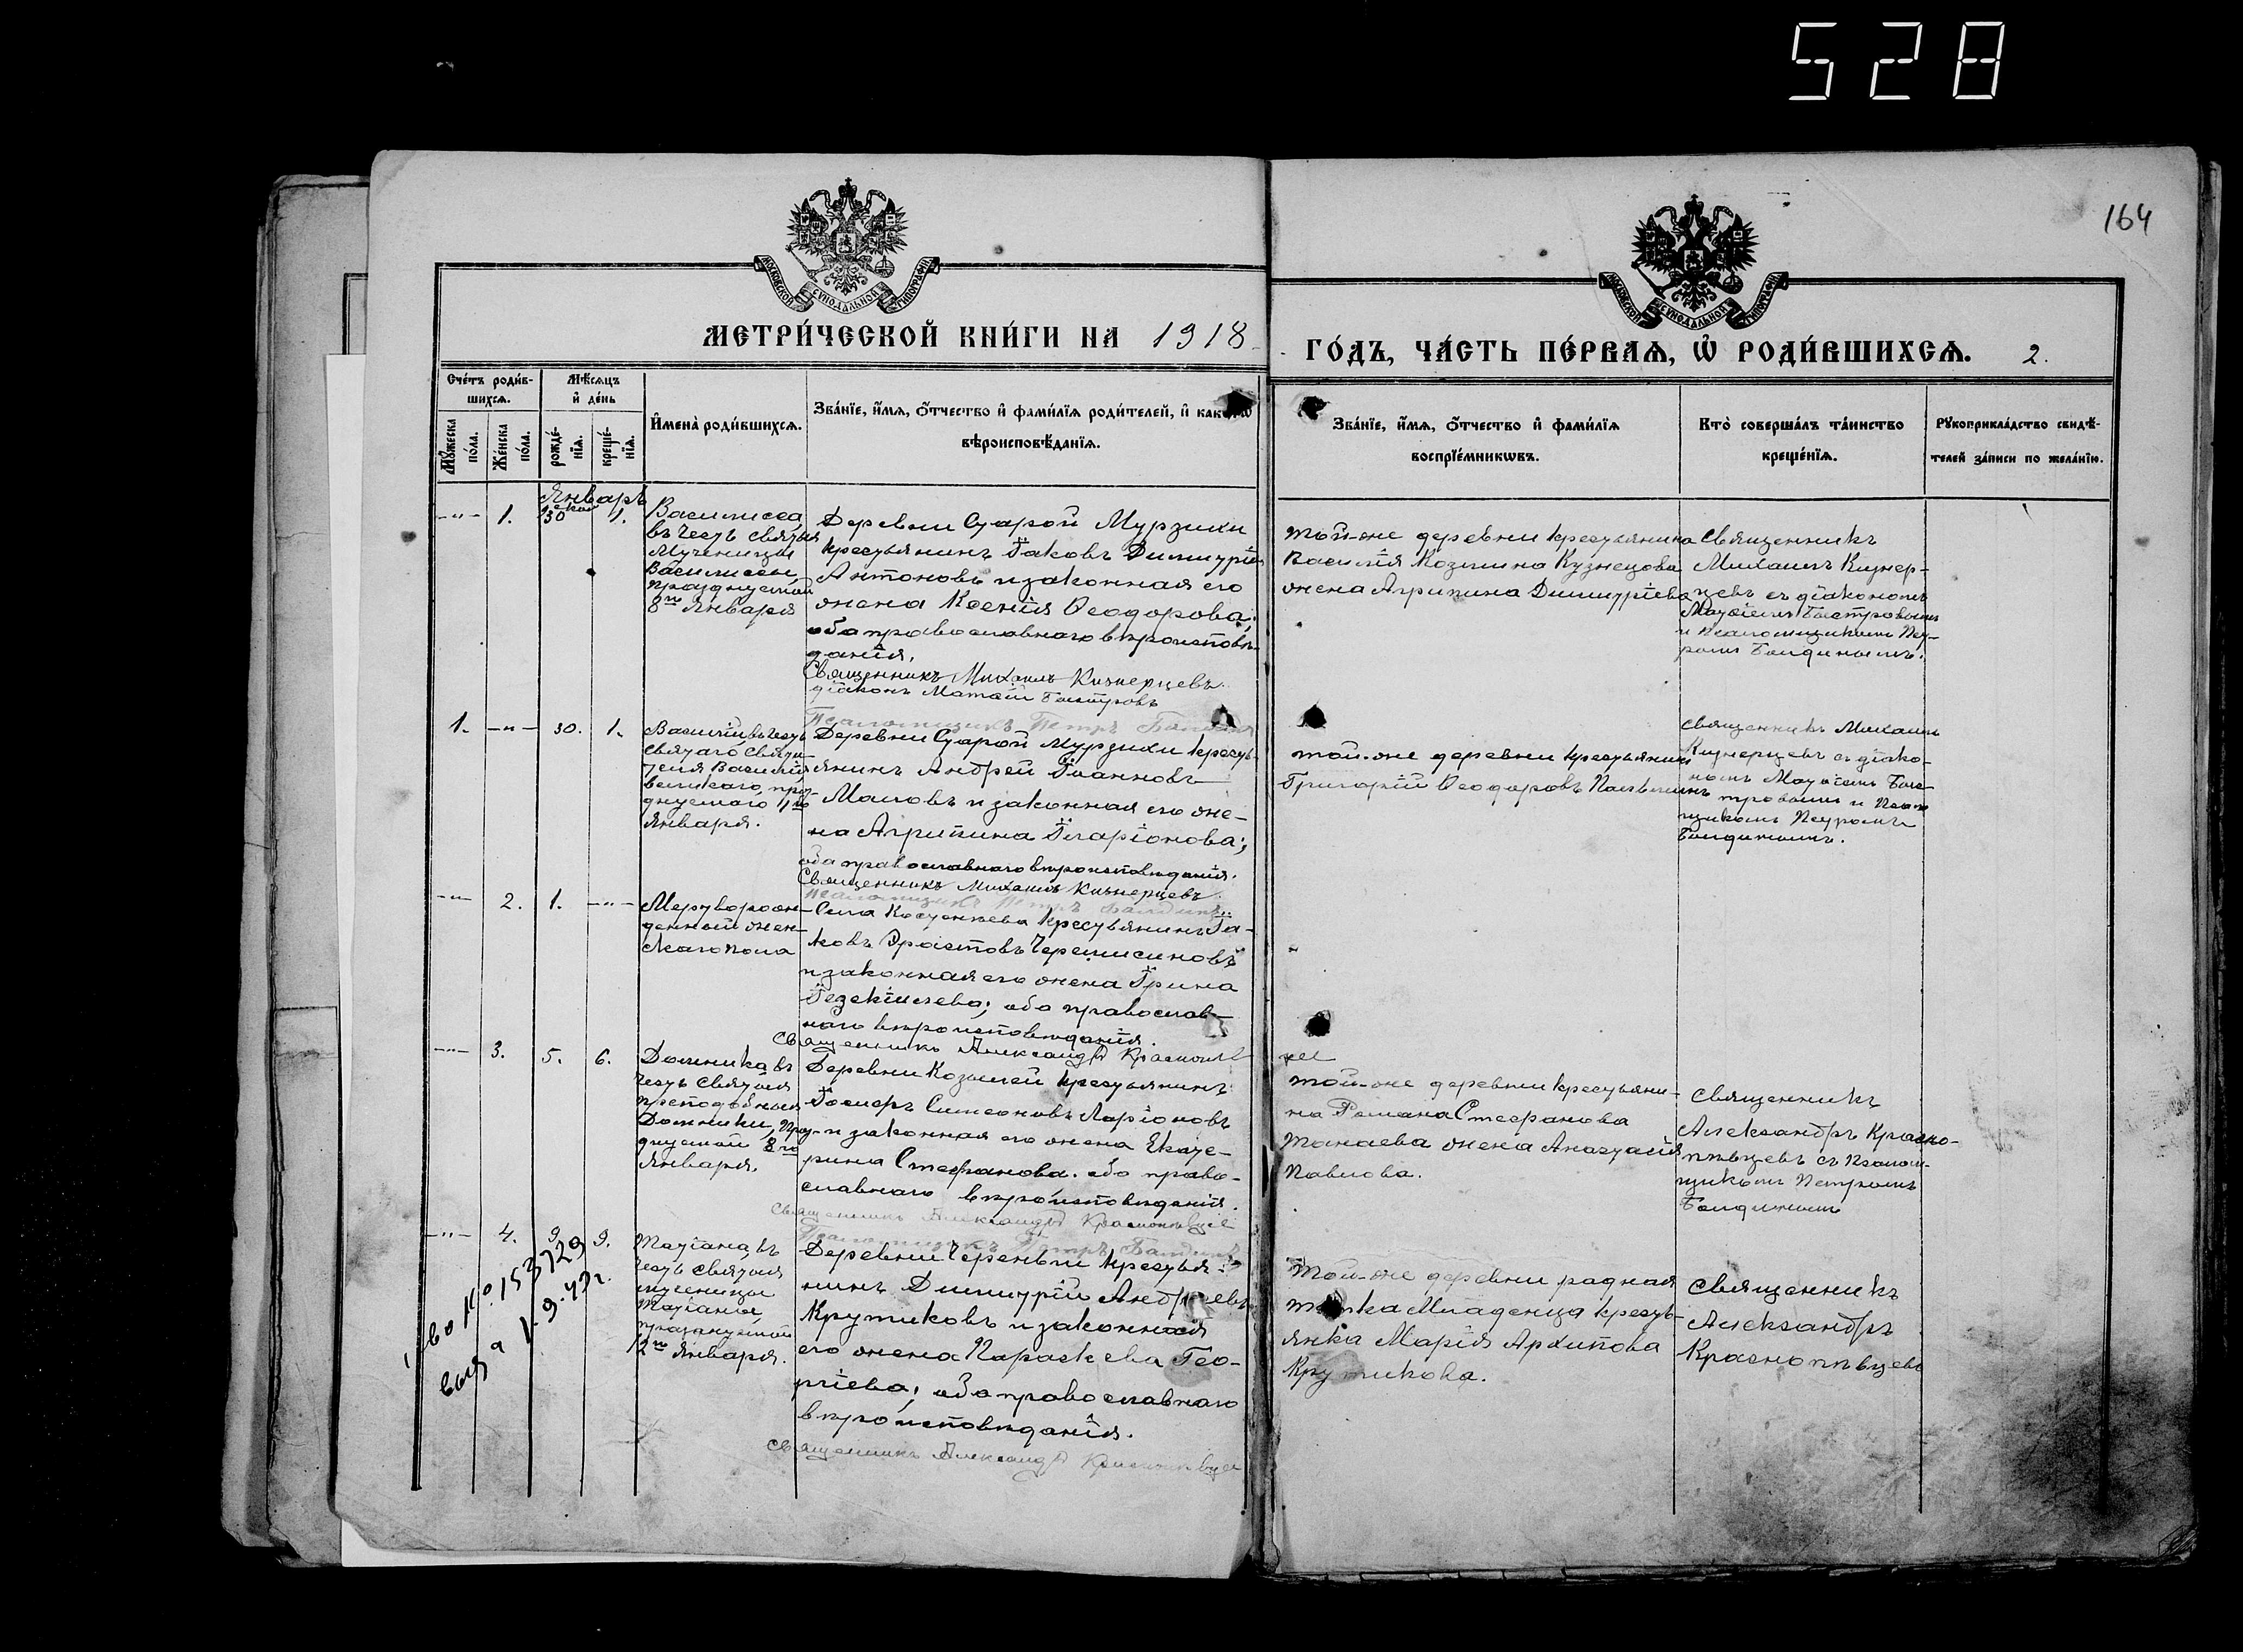 528
164
МОСКОВСКОЙ СѴНОДАЛЬНОЙ ТИПОГРАФІИ
МОСКОВСКОЙ СѴНОДАЛЬНОЙ ТИПОГРАФІИ
МЕТРИ́ЧЕСКОЙ КНИ́ГИ НА 1918
ГО́ДЪ, ЧА́СТЬ ПЕ́РВАѦ, Ѡ҆ РОДИ́ВШИХСѦ. 2.
Сче́тъ роди́в-
шихсѧ.
Мѣ́сѧцъ
и҆ де́нь
Мꙋ́жеска по́ла.
Же́нска по́ла.
рожде́-
нїѧ.
креще́-
нїѧ.
И҆мена̀ роди́вшихсѧ.
Зва́нїе, и҆́мѧ, ѻ҆́тчество и҆ фами́лїѧ роди́телей, и҆ как
вѣроисповѣ́данїѧ.
Зва́нїе, и҆́мѧ, ѻ҆́тчество и҆ фами́лїѧ
воспрїе́мникωвъ.
Кто̀ соверша́лъ та́инство
креще́нїѧ.
Рꙋкоприкла́дство свидѣ́-
телей за́писи по жела́нїю.
Январь
-"- 1. 30 1.
Василисса,
въ честь святыя
Мученицы
Василиссы,
празднуемой
8го Января
Деревни Старой Мурзихи
крестьянинъ Іаковъ Димитріев
Антоновъ и законная его
жена Ксенія Ѳеодорова;
оба православнаго вѣроисповѣ-
данія.
Священникъ Михаилъ Кизнерцевъ
діаконъ Матѳій Быстровъ
Псаломщикъ Петръ
той-же деревни крестьянина
Василія Козмина Кузнецова
жена Агрипина Димитріева
Священникъ
Михаилъ Кизнер-
цевъ съ діакономъ
Матѳіемъ Быстровымъ
и Псаломщикомъ Пет-
ромъ Балдинымъ.
1. -"- 30. 1.
Василій въ честь
Святаго Святи-
теля Василія
великаго, праз-
днуемаго 1го
Января.
Деревни Старой Мурзихи кресть-
янинъ Андрей Іоанновъ
Маловъ и законная его же-
на Агрипина Иларіонова;
оба православнаго вѣроисповѣданія.
Священникъ Михаилъ Кизнерцевъ
Псаломщикъ Петръ Балдинъ
той-же деревни крестьянинъ
Григорій Ѳеодоровъ
Священникъ Михаилъ
Кизнерцевъ съ діако-
номъ Матѳіемъ Быс-
тровымъ и Псалом
щикомъ Петромъ
Балдинымъ.
-"- 2. 1. -"-
Мертворож-
денный жен-
скаго пола
Села Костенѣева крестьянинъ Іа-
ковъ Эрастовъ Черемисиновъ
и законная его жена Ирина
Іезекіилева; оба православ-
наго вѣроисповѣданія.
Священникъ Александръ
-"- 3. 5. 6.
Домника въ
честь Святыя
преподобныя
Домники, праз-
днуемой 8го
Января.
Деревни Козылей крестьянинъ
Симеоновъ Ларіоновъ
и законная его жена Екате-
рина Стефанова. оба право-
славнаго вѣроисповѣданія.
Священникъ Александръ Краснопѣвцев
Псаломщикъ Петръ Балдинъ
той-же деревни крестьяни-
на Романа Стефанова
Танаева жена Анастасія
Павлова.
Священникъ
Александръ Красно-
пѣвцевъ съ Псалом-
щикомъ Петромъ
Балдинымъ
-"- 4. 9. 9.
Татіана, въ
честь Святыя
мученицы
Татіаны,
празднуемой
12го Января.
Деревни Череньги крестья-
нинъ Димитрій Андреевъ
Крутиковъ и законная
его жена Параскева Геор-
гіева; оба православнаго
вѣроисповѣданія.
Священникъ Александръ Краснопѣвцев
Той-же деревни родная
тётка Младенца кресть-
янка Марія Архипова
Крутикова.
Священникъ
Александръ
Краснопѣвцевъ
№ 153729
1.9.43г.